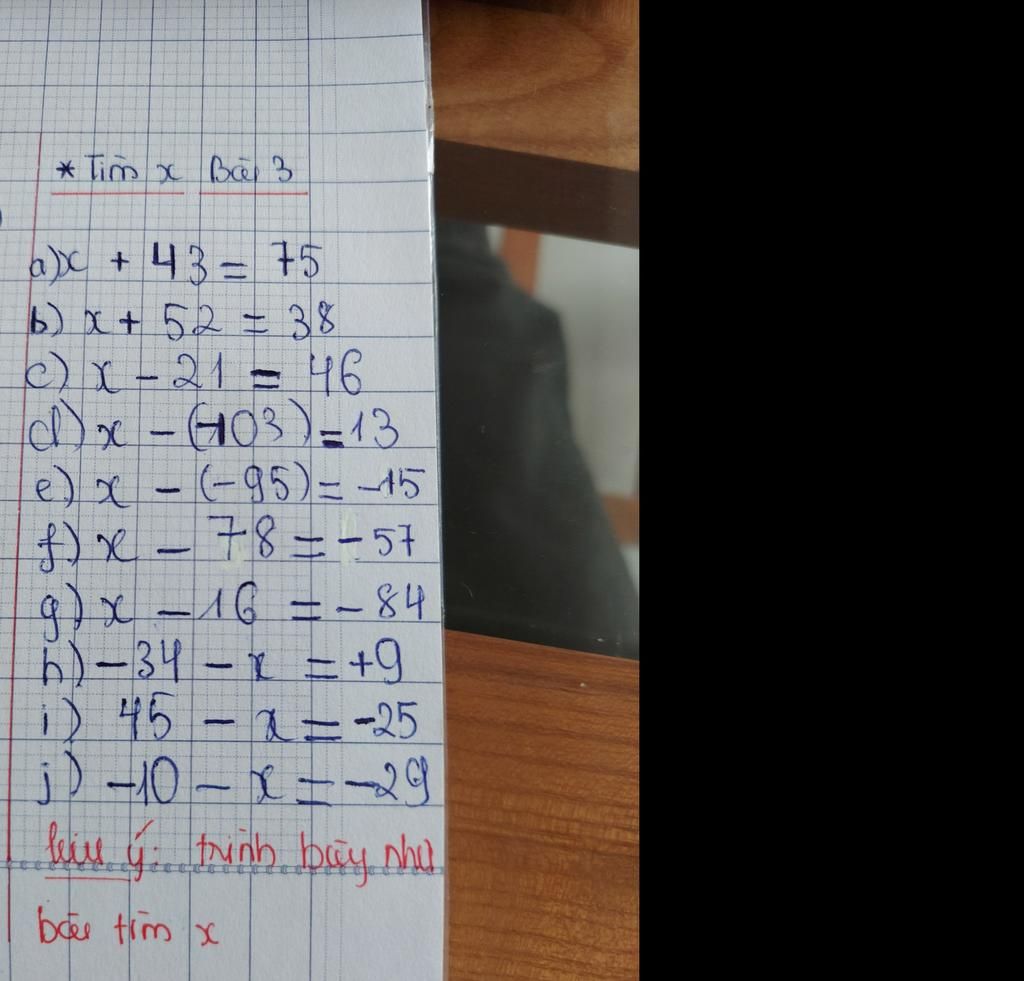 * Tìm x Bài 3
a) x + 43 = 75
b) x + 52 = 38
c) x - 21 = 46
d) x - (-103) = 13
e) x - (-95) = -15
f) x - 78 = -57
g) x - 16 = -84
h) -34 - x = +9
i) 45 - x = -25
j) -10 - x = -29
Lưu ý: trình bày như
bài tìm x